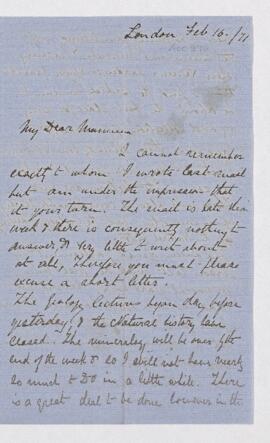 London Feb 16/71
My Dear Mamma
I cannot remember
exactly to whom I wrote last mail
but am under the impression that
it your turn. The mail is late this
week & there is consequently nothing to
answer & very little to write about
at all, Therefore you must please
excuse a short letter.
The geology lectures began day before
yesterday, & the Natural history have
closed. The mineralogy will be over by the
end of the week & so I shall not have nearly
so much to do in a little while. There
is a great deal to be done however in the